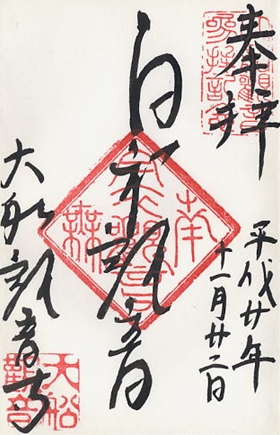 奉拝
平成廿年
十一月廿二日
白衣観音
大船観音寺
大船
觀音